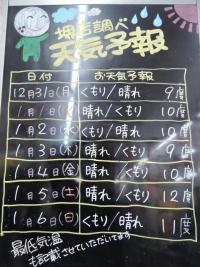 埋店調べ
天気予報
日付 お天気予報
12月31日(月) くもり/晴れ 9度
1月1日(火) 晴れ/くもり 10度
1月2日(水) くもり/晴れ 10度
1月3日(木) 晴れ/くもり 9度
1月4日(金) 晴れ/くもり 10度
1月5日(土) 晴れ/くもり 12度
1月6日(日) くもり/晴れ 11度
最低気温
も記載させていただいてます